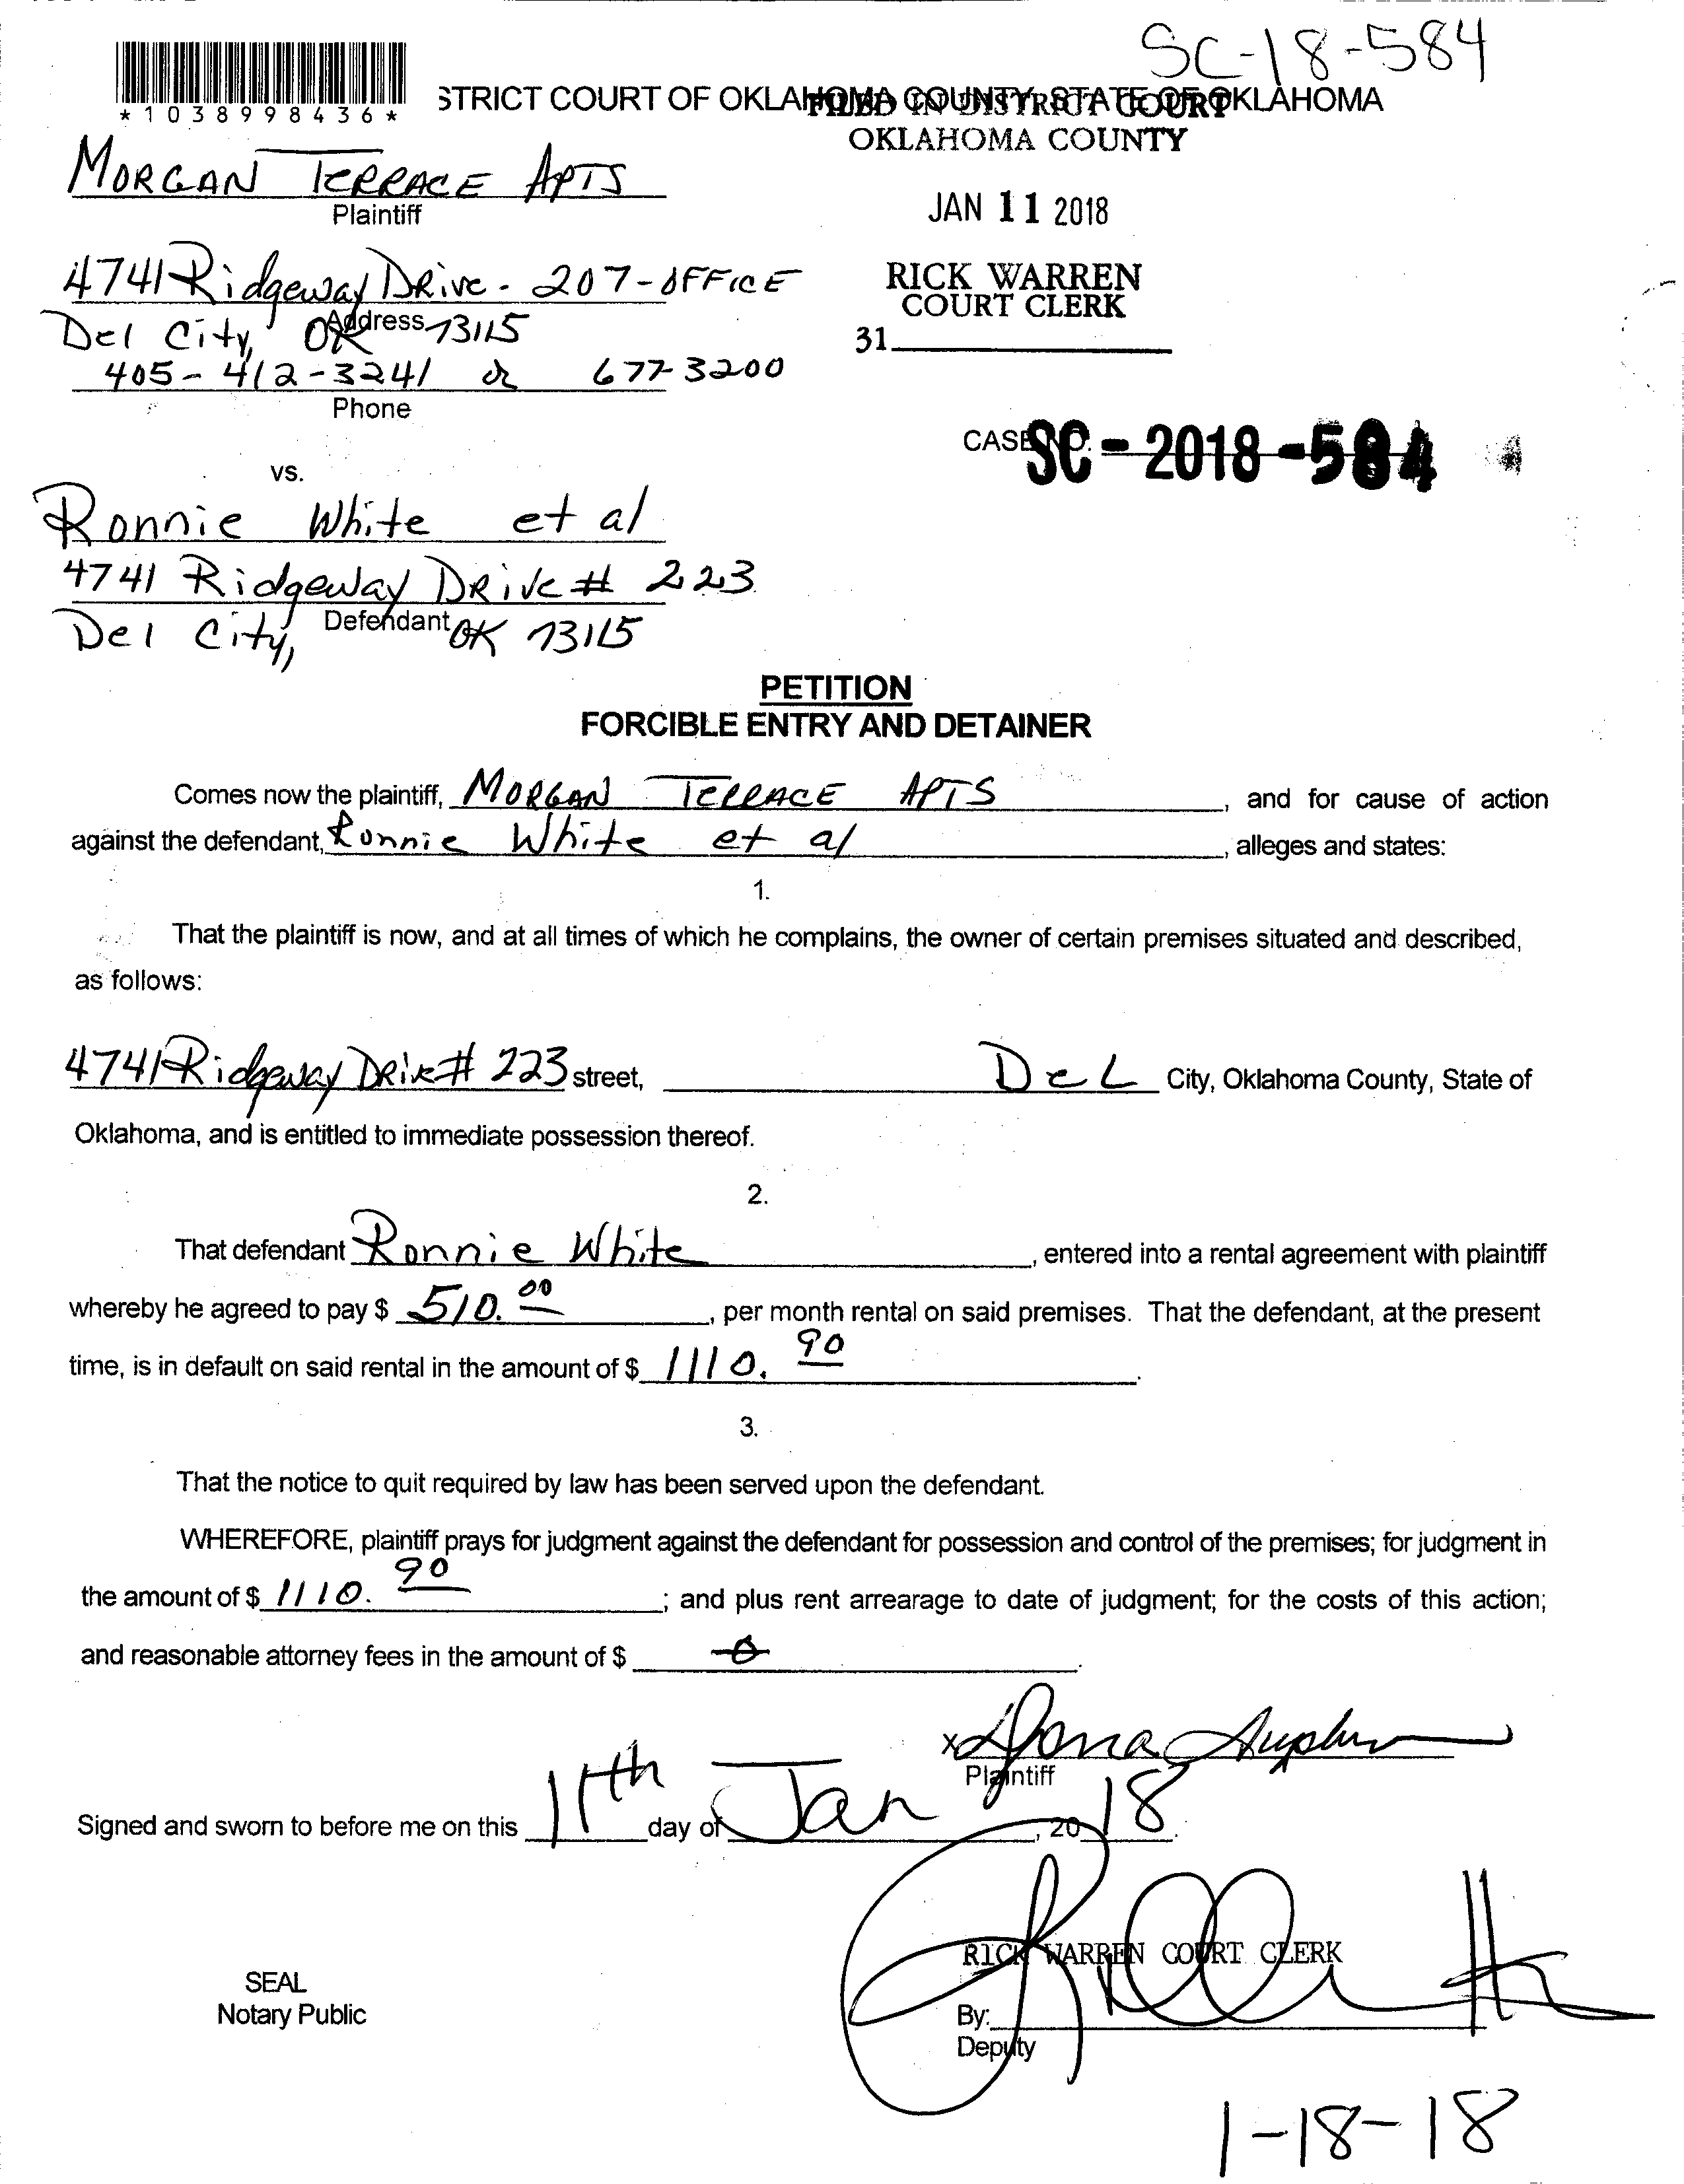 SC-18-584
*1038998436*
STRICT COURT OF OKLAHOMA COUNTY, STATE OF OKLAHOMA
FILED IN DISTRICT COURT
OKLAHOMA COUNTY
MORGAN TERRACE APTS
Plaintiff
JAN 11 2018
4741 Ridgeway Drive - 207-OFFICE
RICK WARREN
COURT CLERK
Address
Del City, OK 73115
31
405-412-3241 or 677-3200
Phone
CASE NO. SC-2018-584
vs.
Ronnie White et al
4741 Ridgeway Drive # 223
Defendant
Del City, OK 73115
PETITION
FORCIBLE ENTRY AND DETAINER
Comes now the plaintiff, MORGAN TERRACE APTS, and for cause of action
against the defendant, Ronnie White et al, alleges and states:
1.
That the plaintiff is now, and at all times of which he complains, the owner of certain premises situated and described,
as follows:
4741 Ridgeway Drive # 223 street, Del City, Oklahoma County, State of
Oklahoma, and is entitled to immediate possession thereof.
2.
That defendant Ronnie White, entered into a rental agreement with plaintiff
whereby he agreed to pay $ 510.00, per month rental on said premises. That the defendant, at the present
time, is in default on said rental in the amount of $ 1110.90.
3.
That the notice to quit required by law has been served upon the defendant.
WHEREFORE, plaintiff prays for judgment against the defendant for possession and control of the premises; for judgment in
the amount of $ 1110.90; and plus rent arrearage to date of judgment; for the costs of this action;
and reasonable attorney fees in the amount of $ 0.
X Dona
Plaintiff
Signed and sworn to before me on this 11th day of Jan, 2018.
RICK WARREN COURT CLERK
SEAL
Notary Public
By:
Deputy
1-18-18